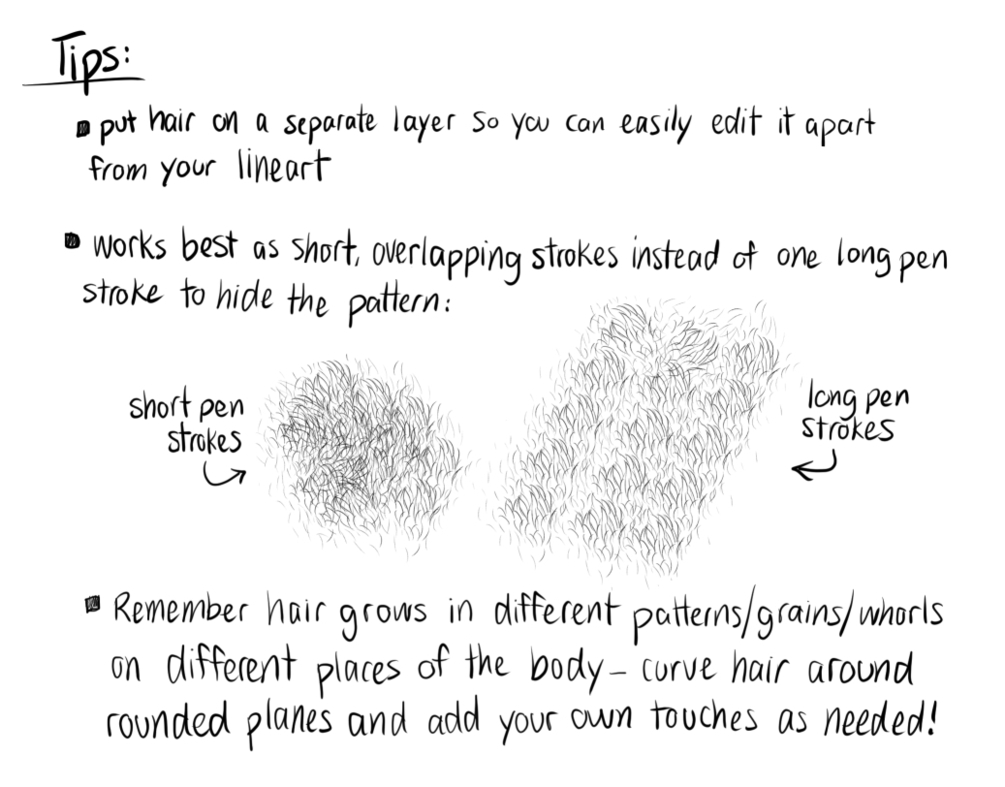 Tips:
▪ put hair on a separate layer so you can easily edit it apart
from your lineart
▪ works best as short, overlapping strokes instead of one long pen
stroke to hide the pattern:
short pen
strokes
long pen
strokes
▪ Remember hair grows in different patterns/grains/whorls
on different places of the body – curve hair around
rounded planes and add your own touches as needed!